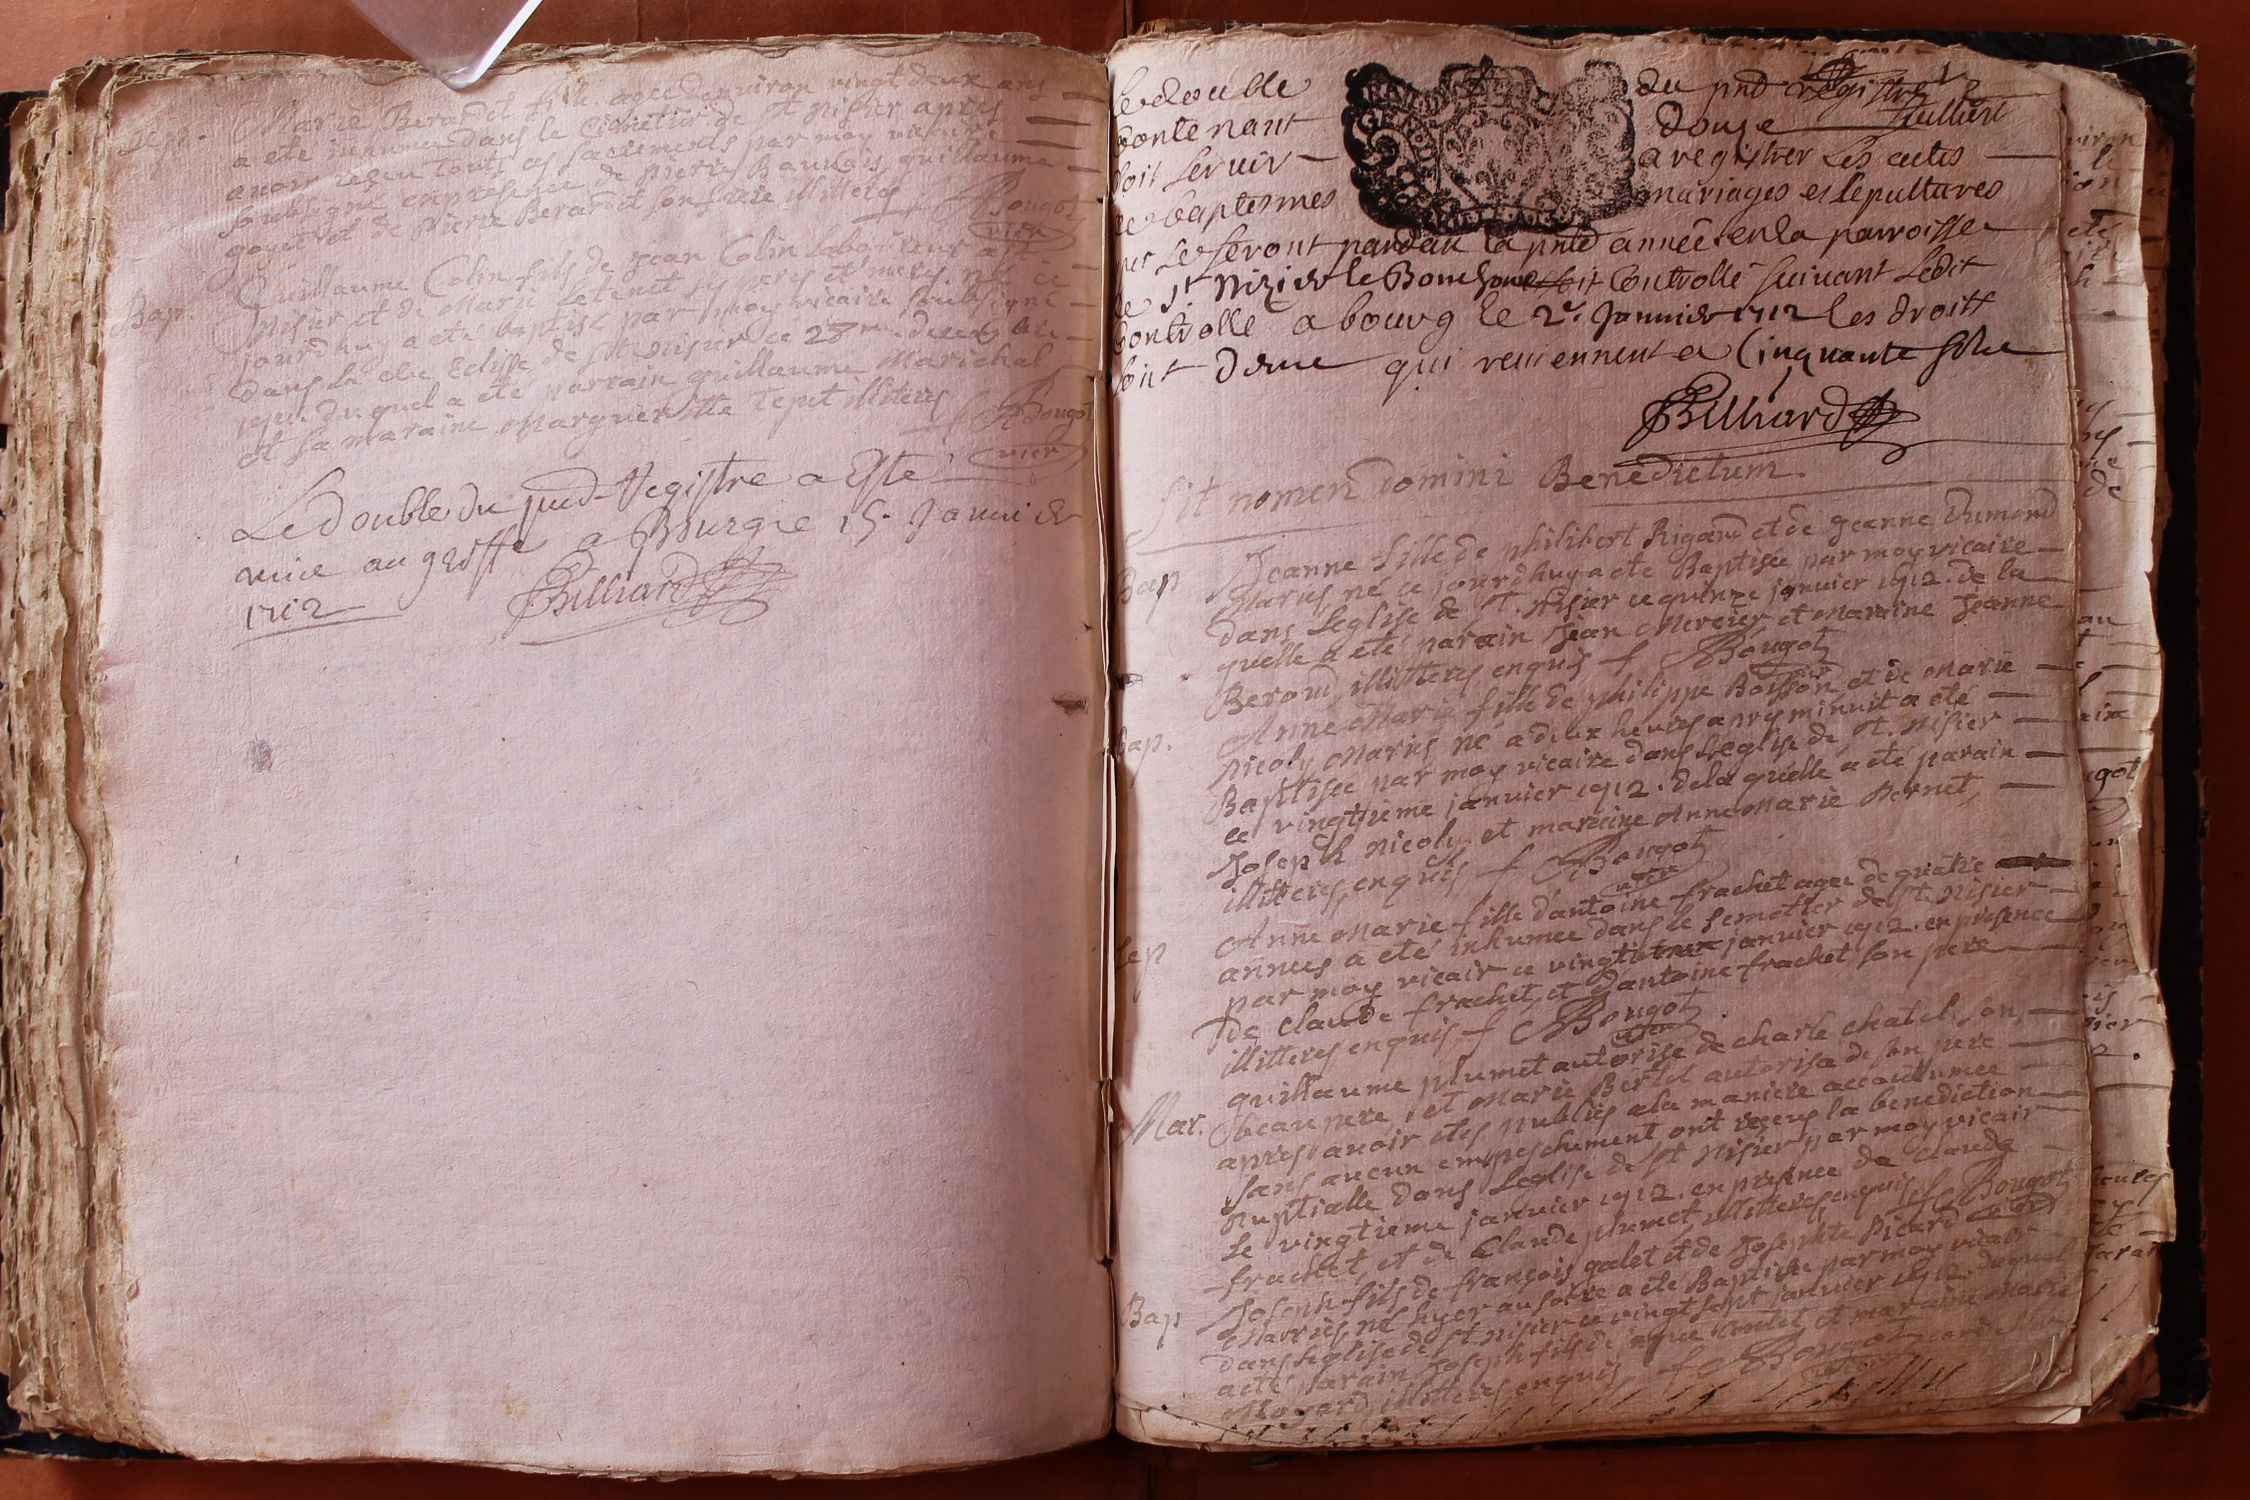 Sep.
Marie Berardet fille agee denviron vingt deux ans
a eté inhumee dans le cimetier de st nisier apres
avoir receu touts ces sacrements par moy vicaire
soubsigné en presence de pierre guillaume
goyet et de pierre Berardet son frere illiteres
Bougot
vicr
Bap.
Guillaume Colin fils de jean Colin laboureur a st
nisier et de Marie ses peres et meres né ce
jourdhuy a eté baptisé par moy vicaire soubsigné
dans la dte Eclise de st nisier ce 28me decembre
1711. duquel a eté parrain guillaume Marichal
et sa maraine Margueritte illiteres
Bougot
vicr
Le double du pnd Registre a Esté
mis au greffe a Bourg ce 15. Janvier
1712
Billiard
Le double du pnd Registre
Contenant douze feuillets
doit servir a registrer Les actes
de baptesmes mariages et sepultures
qui se feront pandan la pnte année en la parroisse
de st Nizier le Bouchoux soit Controllé suivant Ledit
Controlle a bourg le 2e. Janvier 1712 les droits
sont deue qui reviennent a Cinquante sols
Billiard
Sit nomen Domini Benedictum.
Bap
Jeanne fille de philibert Rigaud et de jeanne Dumond
Mariés, né ce jourdhuy a eté Baptisée par moy vicaire
dans Leglise de st. nisier ce quinze janvier 1712. de la
quelle a eté parain Jean Mercier et Maraine Jeanne
Beraud, illitteres enquis f Bougot
vicr
Bap.
Anne Marie fille de philippe Boisson et de Marie
Nicoly Mariés né a deux heures apres minuit a eté
Baptisée par moy vicaire dans Leglise de st. Nisier
ce vingtieme janvier 1712. de la quelle a eté parain
Joseph Nicoly et maraine Anne Marie Pernet
illitteres enquis f Bougot
vicr
Sep
Anne Marie fille d'antoine frachet agee de quatre
annees a eté inhumee dans le semettier de st. Nisier
par moy vicair ce vingt janvier 1712. en presence
de claude frachet et d'antoine frachet son pere
illitteres enquis f Bougot
vicr
Mar.
guillaume plumet autorise de charle chatel son
beau pere, et Marie Bertet autorisa de son pere
apres avoir etes publiés a la maniere accoutumee
sans aucun empeschement ont receus la benediction
nuptialle dans Leglise de st Nisier par moy vicair
le vingtieme janvier 1712. en presence de claude
frachet, et de Claude plumet illitteres enquis f Bougot
vicr
Bap
Joseph fils de françois galet et de Josephte Picard
Mariés, né hyer au soire a eté Baptisé par moy vicair
dans Leglise de st Nisier ce vingt sept janvier 1712. duquel
a eté parain Joseph fils de et maraine Marie
illitteres enquis f Bougot